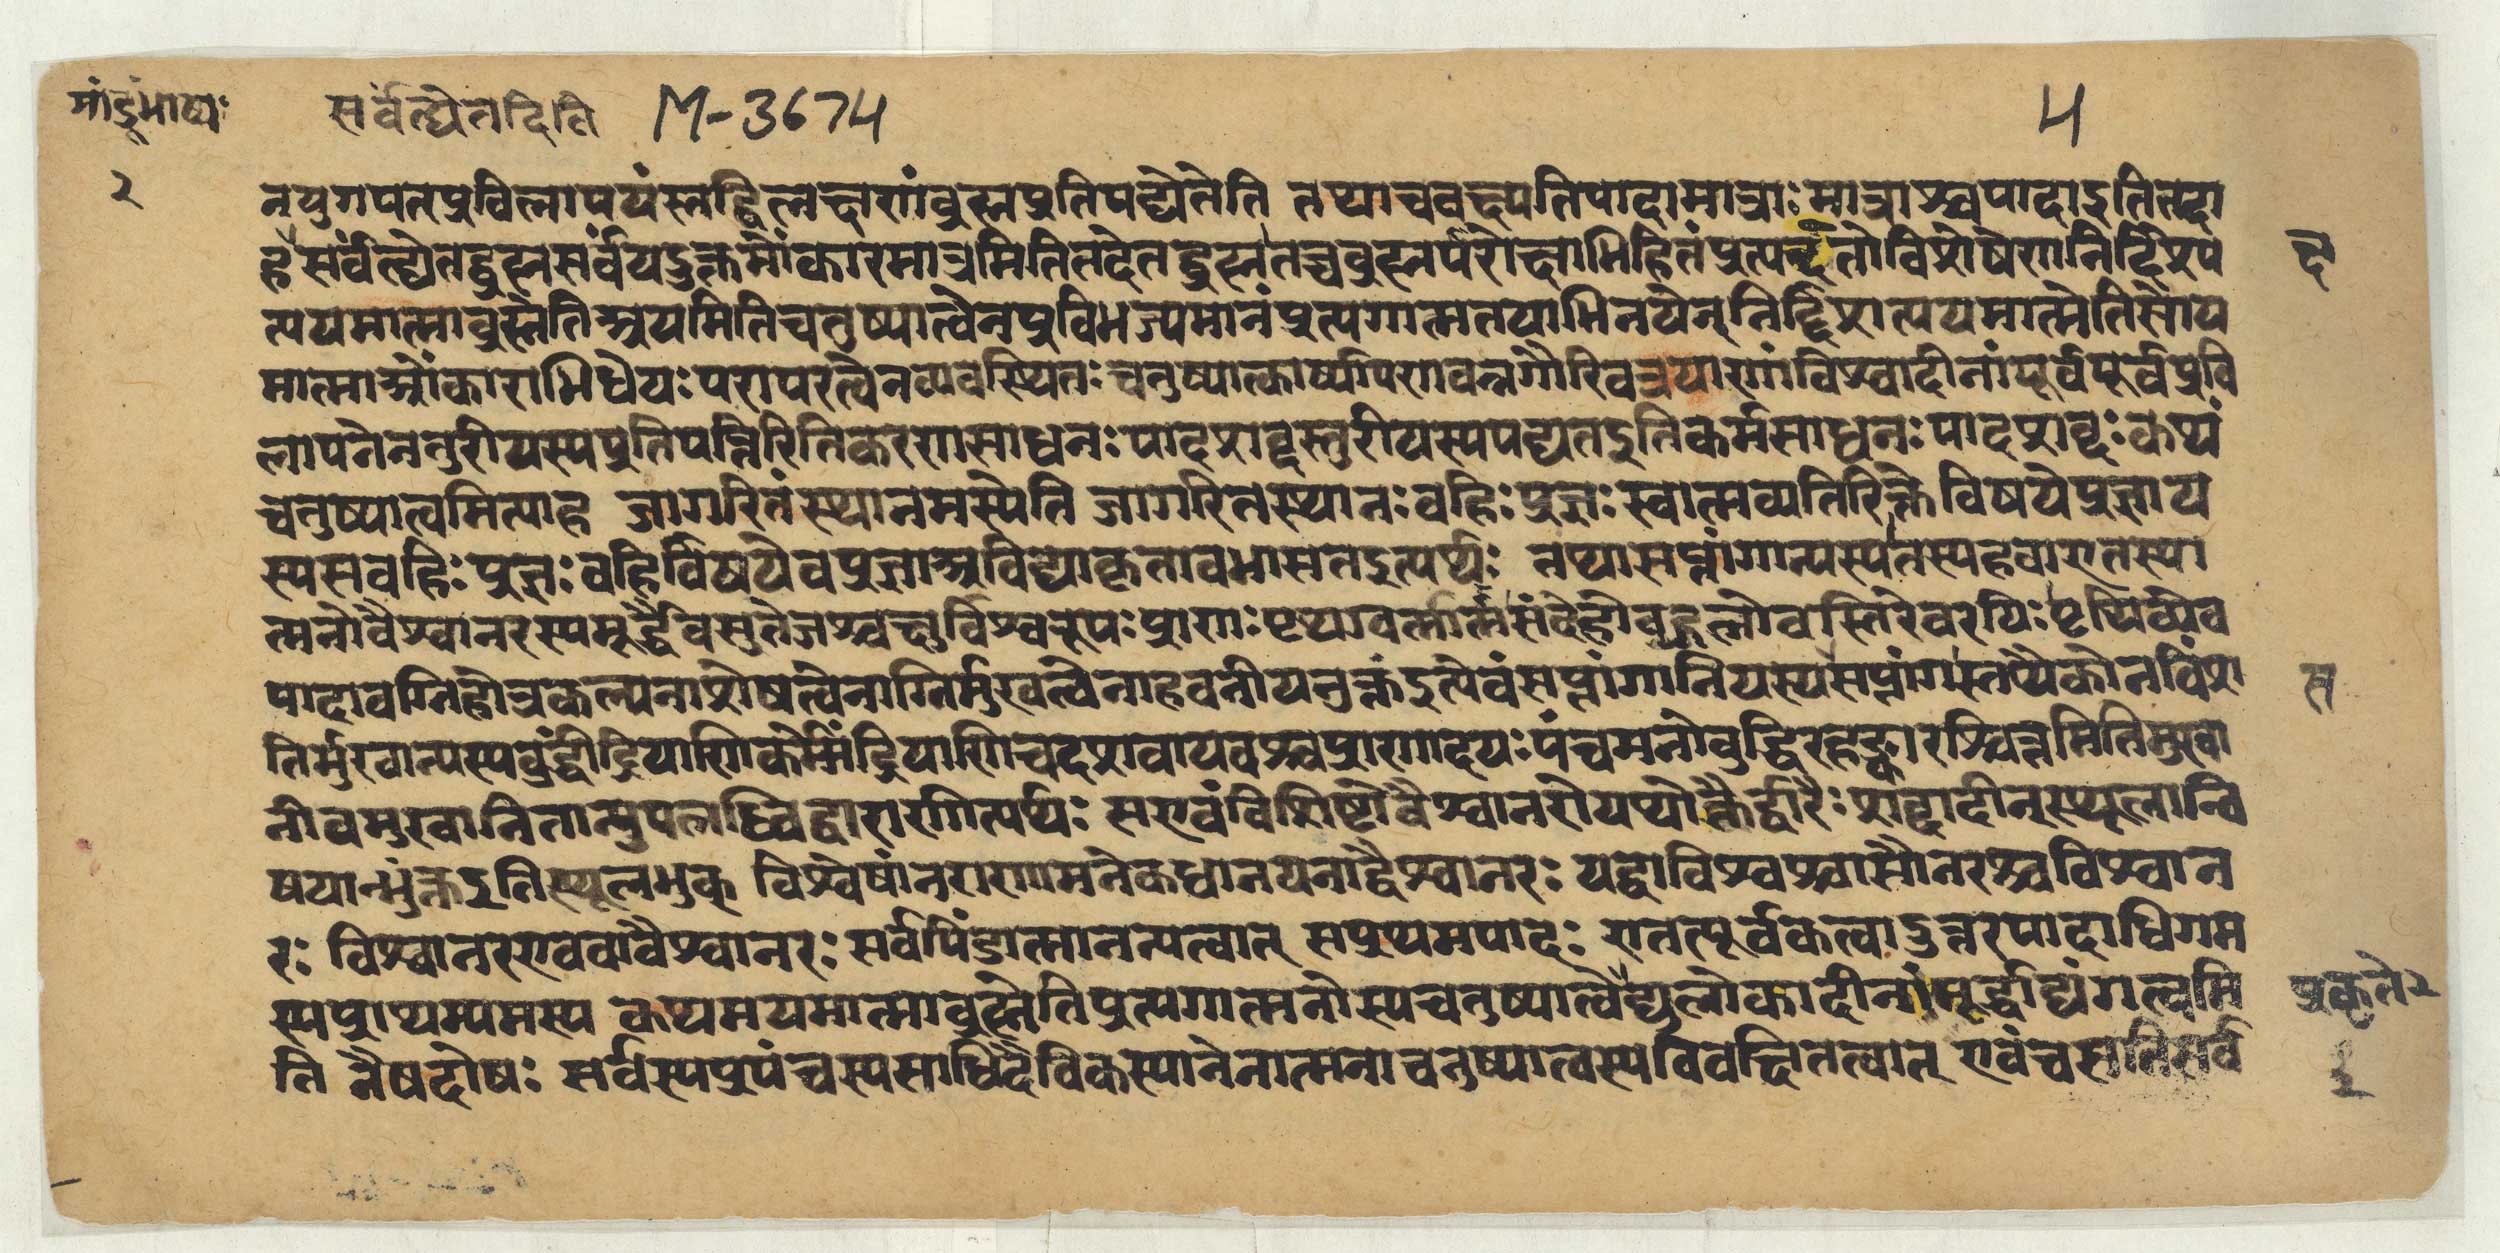 मांडूभाष्य: सर्वंत्द्येतदिति M-3674 4
२
नयुगपत्प्रविलापयंस्तद्विलक्षणंब्रह्मप्रतिपद्येतेति तथाचवक्ष्यतिपादामात्राः मात्राश्चपादाइतितदा
ह सर्वंत्द्येतद्ब्रह्मसर्वंयदुक्तमोंकारमात्रमितितदेतद्ब्रह्म तच्चब्रह्मपरोक्षाभिहितंप्रत्यक्षतोविशेषेणनिर्दिशप क्ष
त्ययमात्माब्रह्मेतिअयमितिचतुष्पात्वेनप्रविभज्यमानंप्रत्यगात्मतयाभिनयेननिर्द्दिशत्ययमात्मेतिसोय
मात्माओंकाराभिधेयः परापरत्वेनव्यवस्थितः चतुष्पात्कार्षापणवन्नगौरिवत्रयाणांविश्वादीनांपूर्वपूर्वप्रवि
लापनेनतुरीयस्यप्रतिपत्तिरितिकरणसाधनः पादशब्दस्तुरीयस्यपद्यतइतिकर्मसाधनः पादशब्दः कथं
चतुष्पात्वमित्याह जागरितंस्थानमस्येति जागरितस्थानः वहिः प्रज्ञः स्वात्मव्यतिरिक्तेविषयेप्रज्ञाय
स्यसवहिः प्रज्ञः वहिर्विषयेवप्रज्ञाअविद्याकृतावभासतइत्यर्थः तथासप्तांगान्यस्य तस्यहवाएतस्या
त्मनोवैश्वानरस्यमूर्द्धैवसुतेजश्चक्षुर्विश्वरूपः प्राणः पृथग्वर्त्मात्मसंदेहोबहुलोवस्तिरेवरयिः पृथिव्येव
पादावग्निहोत्रकल्पनाशेषत्वेनाग्निर्मुखत्वेनाहवनीयउक्तंइत्येवंसप्तांगानियस्य सप्तांग स्तथैकोनविंश स
तिर्मुखान्यस्यबुद्धींद्रियाणिकर्मेंद्रियाणिचदशवायवश्चप्राणादयः पंचमनोबुद्धिरहङ्कारश्चित्तमितिमुखा
नीवमुखानितान्युपलब्धिद्वाराणीत्यर्थः सएवंविशिष्टोवैश्वानरोयथोक्तैर्द्वारैः शब्दादीन्स्थूलान्वि
षयान्भुंक्तइतिस्थूलभुक् विश्वेषांनराणामनेकधानयनाद्वैश्वानरः यद्वाविश्वश्चासौनरश्चविश्वान
रः विश्वानरएववावैश्वानरः सर्वपिंडात्मानन्यत्वात् सप्रथमपादः एतत्पूर्वकत्वादुत्तरपादाधिगम
स्यप्राथम्यमस्य कथमयमात्माब्रह्मेतिप्रत्यगात्मनोस्यचतुष्पात्वे द्युलोकादीनांमूर्द्धाद्यंगत्वमि प्रकृते२
ति नैषदोषः सर्वस्यप्रपंचस्यसाधिदैविकस्यानेनात्मनाचतुष्पात्वस्यविवक्षितत्वात् एवंचसतिसर्व